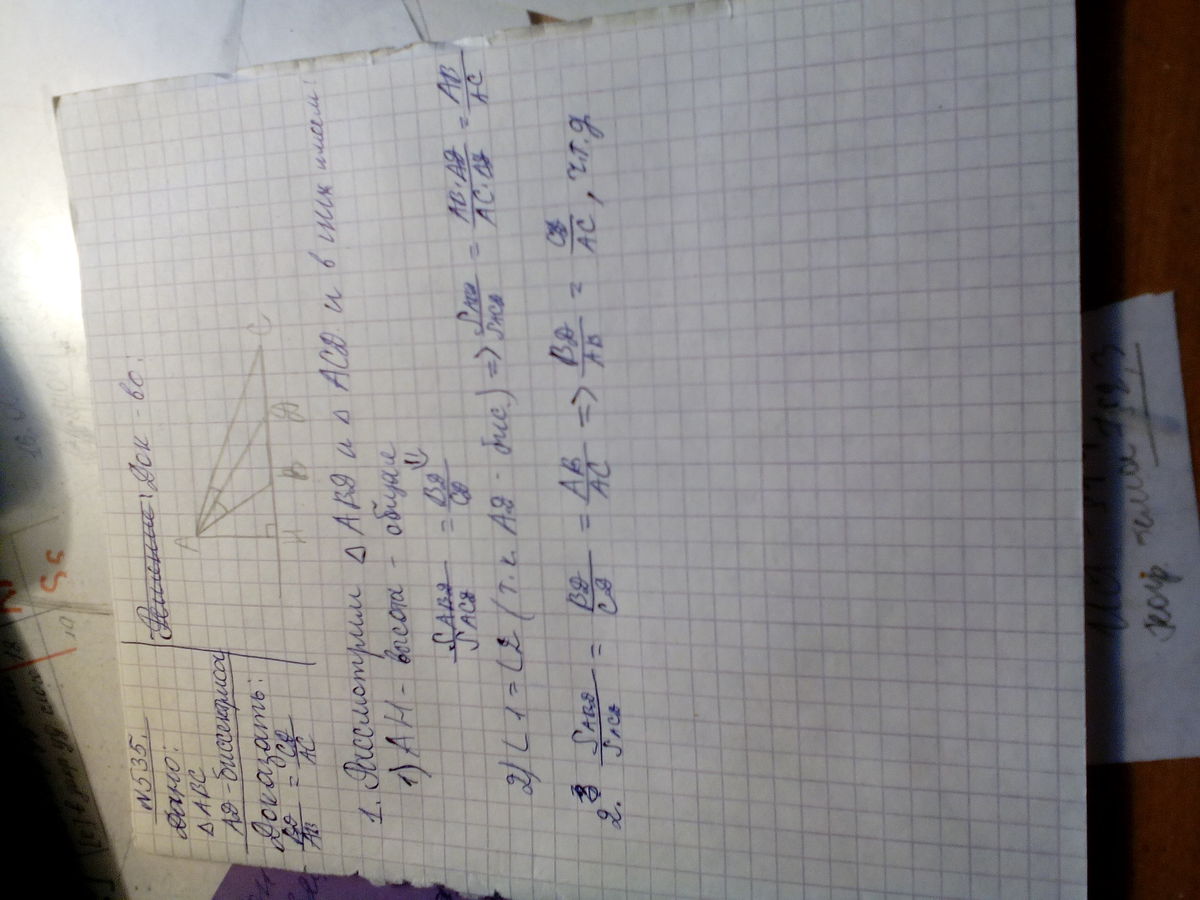 N535.
Дано:
△ABC
AD - биссектриса
Доказать:
BD/AB = CD/AC
Док - во:
A
H B D C
1. Рассмотрим △ ABD и △ ACD и в них имеем:
1) AH - высота - общая
S ABD / S ACD = BD / CD
2) ∠1 = ∠2 (т.к. AD - бис.) => S ABD / S ACD = AB · AD / AC · CD = AB / AC
2. S ABD / S ACD = BD / CD = AB / AC => BD / AB = CD / AC , ч.т.д